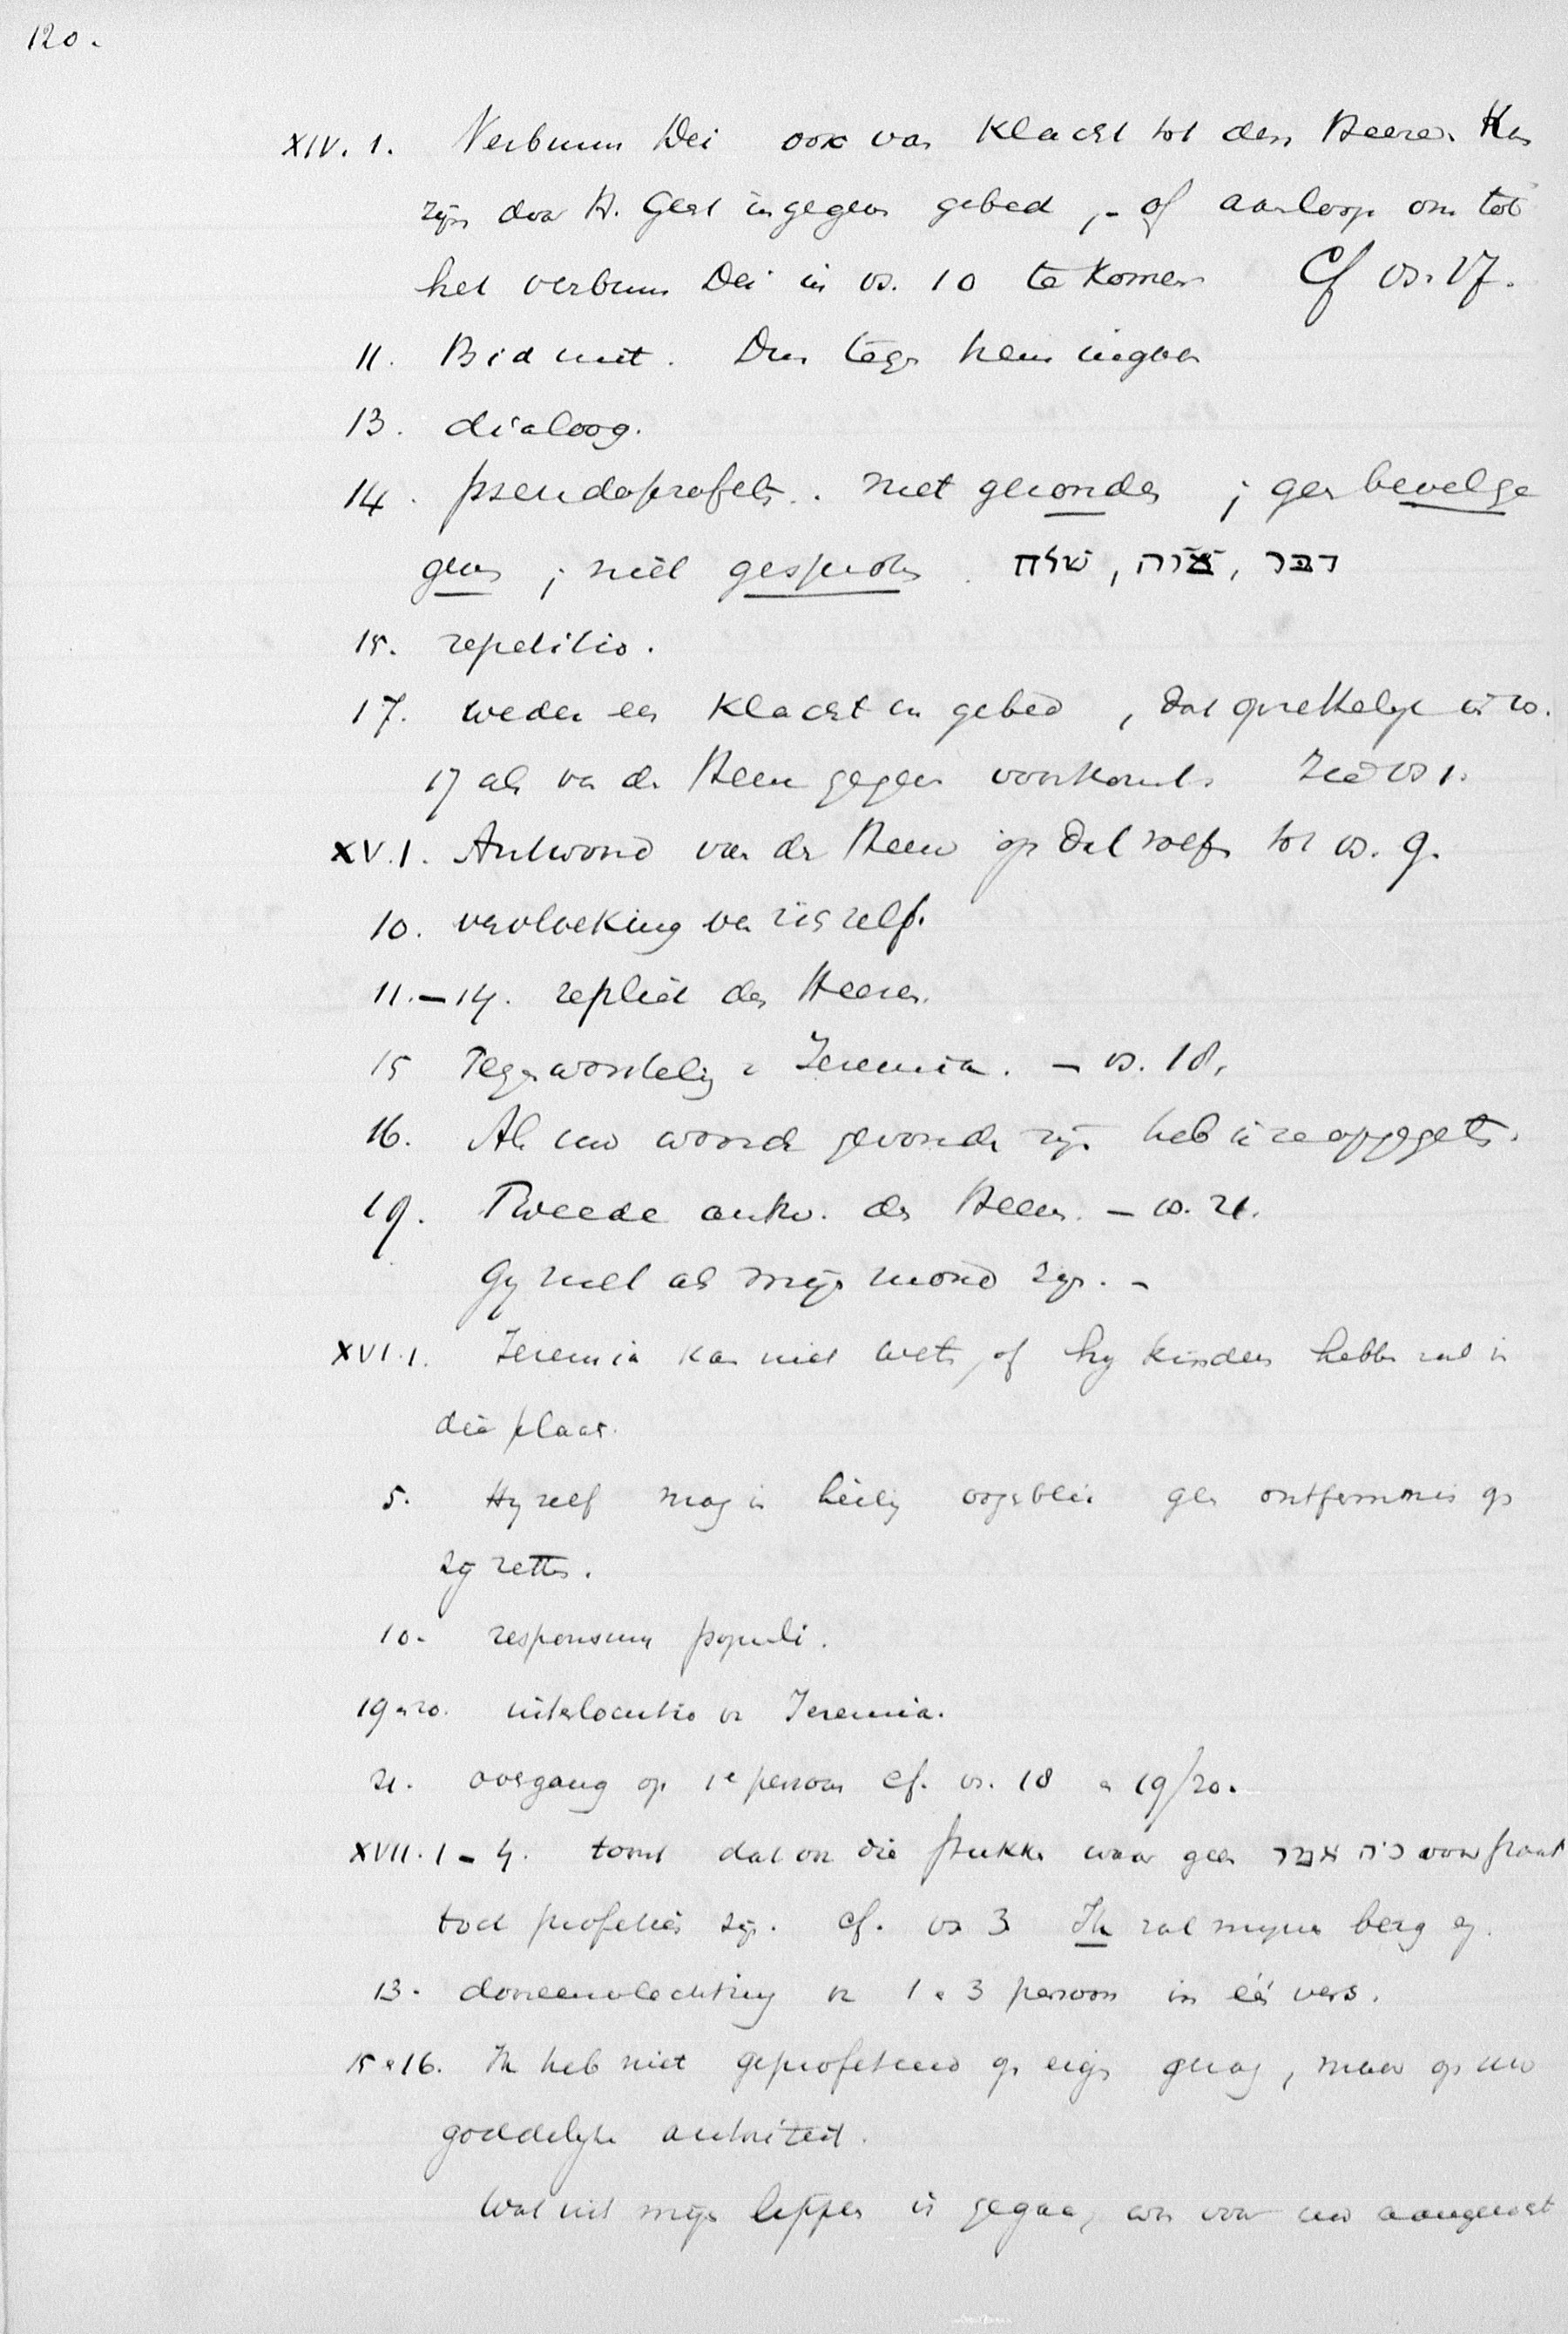 120.
XIV. 1. Verbum Dei ook van Klacht tot den Heere. Kan
zijn door H. Geest ingegeven gebed, - of aanloop om tot
het verbum Dei in vs. 10 te komen Cf vs. 17.
11. Bid niet. Dus tegen hem ingaan
13. dialoog.
14. pseudoprofeten. niet gezonden ; geen bevel ge
geven ; niet gesproken. שלח, צוה, דבר
15. repetitio.
17. weder een Klacht en gebed, dat opzettelijk in vs.
17 als van den Heere gegeven voorkomt. Zie vs 1.
XV. 1. Antwoord van den Heere op dat zelfde tot vs. 9.
10. vervloeking van zich zelf.
11. - 14. repliek des Heeren.
15 Tegenwoordelijk Jeremia. - vs. 18.
16. Als uw woorden gevonden zijn heb ik ze opgegeten.
19. Tweede antw. des Heeren. - vs. 21.
Gij zult als mijn mond zijn. -
XVI. 1. Jeremia kan niet weten, of hij kinderen hebben zal in
die plaats.
5. Hij zelf mag in heilig oogenblik geen ontfermenis op
zij zetten.
10. responsum populi.
19 en 20. interlocutio v. Jeremia.
21. overgang op 1e persoon cf. vs. 18 en 19/20.
XVII. 1 - 4. toont dat ook die stukken waar geen כֹּה אמר voor staat
toch profetiën zijn. cf. vs 3 Ik zal mijnen berg
13. dooreenvlechting v. 1 en 3 persoon in één vers.
15 en 16. Ik heb niet geprofeteerd op eigen gezag, maar op uw
goddelijke autoriteit.
Wat uit mijn lippen is gegaan, was voor uw aangezicht